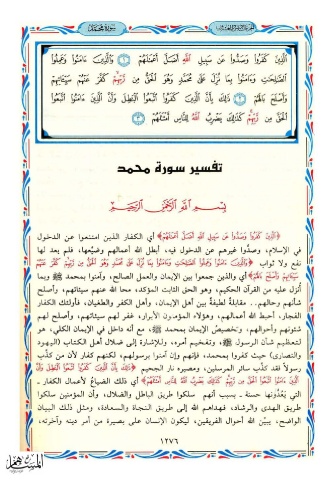 سورة محمد
الَّذِينَ كَفَرُوا وَصَدُّوا عَن سَبِيلِ اللَّهِ أَضَلَّ أَعْمَالَهُمْ ۝١ وَالَّذِينَ ءَامَنُوا وَعَمِلُوا
الصَّالِحَاتِ وَءَامَنُوا بِمَا نُزِّلَ عَلَىٰ مُحَمَّدٍ وَهُوَ الْحَقُّ مِن رَّبِّهِمْ كَفَّرَ عَنْهُمْ سَيِّئَاتِهِمْ
وَأَصْلَحَ بَالَهُمْ ۝٢ ذَٰلِكَ بِأَنَّ الَّذِينَ كَفَرُوا اتَّبَعُوا الْبَاطِلَ وَأَنَّ الَّذِينَ ءَامَنُوا اتَّبَعُوا
الْحَقَّ مِن رَّبِّهِمْ كَذَٰلِكَ يَضْرِبُ اللَّهُ لِلنَّاسِ أَمْثَالَهُمْ ۝٣
تفسير سورة محمد
بسم الله الرحمن الرحيم
﴿الَّذِينَ كَفَرُوا وَصَدُّوا عَن سَبِيلِ اللَّهِ أَضَلَّ أَعْمَالَهُمْ﴾ أي الكفار الذين امتنعوا عن الدخول
في الإسلام، وصدُّوا غيرهم عن الدخول فيه، أبطل الله أعمالهم وضيَّعها، فلم يعد لها
نفع ولا ثواب ﴿وَالَّذِينَ ءَامَنُوا وَعَمِلُوا الصَّالِحَاتِ وَءَامَنُوا بِمَا نُزِّلَ عَلَىٰ مُحَمَّدٍ وَهُوَ الْحَقُّ مِن رَّبِّهِمْ كَفَّرَ عَنْهُمْ
سَيِّئَاتِهِمْ وَأَصْلَحَ بَالَهُمْ﴾ أي والذين جمعوا بين الإيمان والعمل الصالح، وآمنوا بمحمد ﷺ وبما
أنزل عليه من القرآن الحكيم، وهو الحق الثابت المؤكد، محا الله عنهم سيئاتهم، وأصلح
شأنهم وحالهم.. مقابلةٌ لطيفةٌ بين أهل الإيمان، وأهل الكفر والطغيان، فأولئك الكفار
الفجار، أحبط الله أعمالهم، وهؤلاء المؤمنون الأبرار، غفر لهم سيئاتهم، وأصلح لهم
شئونهم وأحوالهم، وتخصيصُ الإيمان بمحمد ﷺ، مع أنه داخل في الإيمان الكلي، هو
لتعظيم شأن الرسول ﷺ وتفخيم أمره، وللإشارة إلى ضلال أهل الكتاب (اليهود
والنصارى) حيث كفروا بمحمد، فإنهم وإن آمنوا برسولهم، لكنهم كفار لأن من كذَّب
رسولاً فقد كذَّب سائر المرسلين، ومصيره نار الجحيم ﴿ذَٰلِكَ بِأَنَّ الَّذِينَ كَفَرُوا اتَّبَعُوا الْبَاطِلَ وَأَنَّ
الَّذِينَ ءَامَنُوا اتَّبَعُوا الْحَقَّ مِن رَّبِّهِمْ كَذَٰلِكَ يَضْرِبُ اللَّهُ لِلنَّاسِ أَمْثَالَهُمْ﴾ أي ذلك الضياعُ لأعمال الكفار ـ
التي يَعُدُّونها حسنة ـ بسبب أنهم سلكوا طريق الباطل والضلال، وأن المؤمنين سلكوا
طريق الهدى والرشاد، فهداهم الله إلى طريق النجاة والسعادة، ومثل ذلك البيان
الواضح، يبيِّن الله أحوال الفريقين، ليكون الإنسان على بصيرة من أمر دينه وآخرته،
١٢٧٦